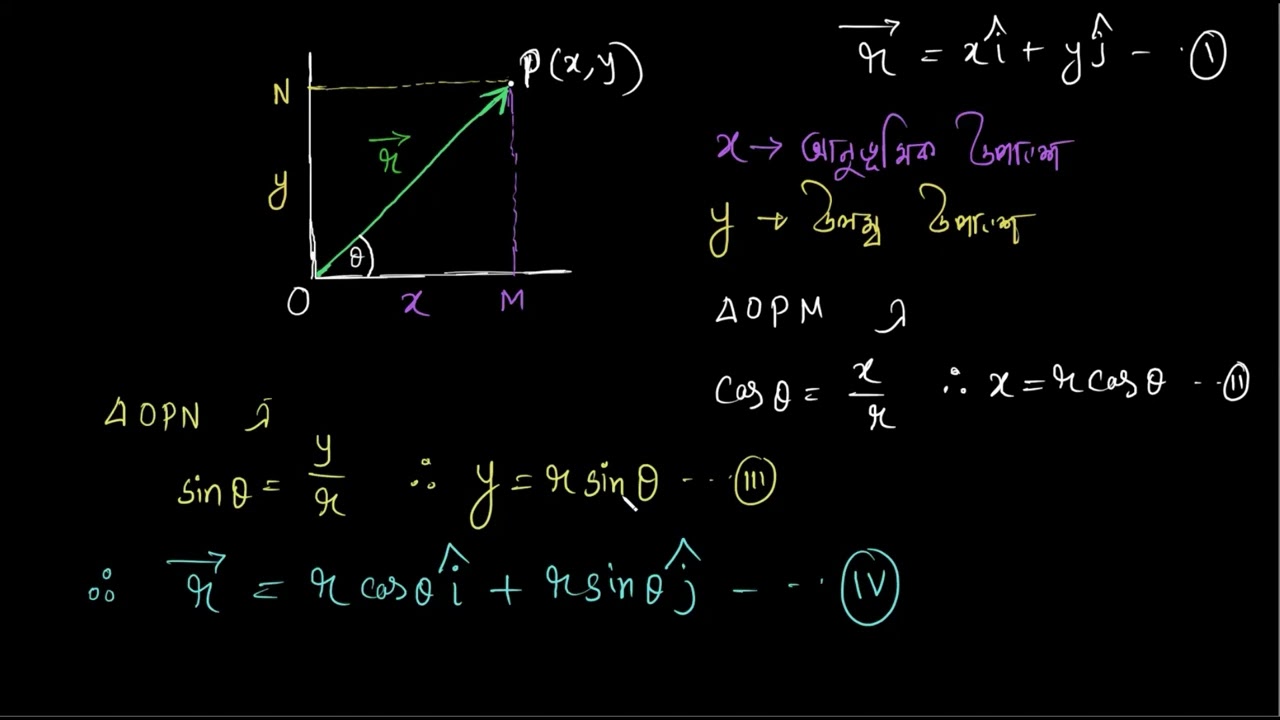 N
P(x,y)
$\vec{r}$
y
θ
O
x
M
$\vec{r} = x\hat{i} + y\hat{j}$ --- (I)
x → আনুভূমিক উপাংশ
y → উলম্ব উপাংশ
ΔOPM এ
cosθ = $\frac{x}{r}$ ∴ x = r cosθ --- (II)
ΔOPN এ
sinθ = $\frac{y}{r}$ ∴ y = r sinθ --- (III)
∴ $\vec{r} = r\cosθ\hat{i} + r\sinθ\hat{j}$ --- (IV)